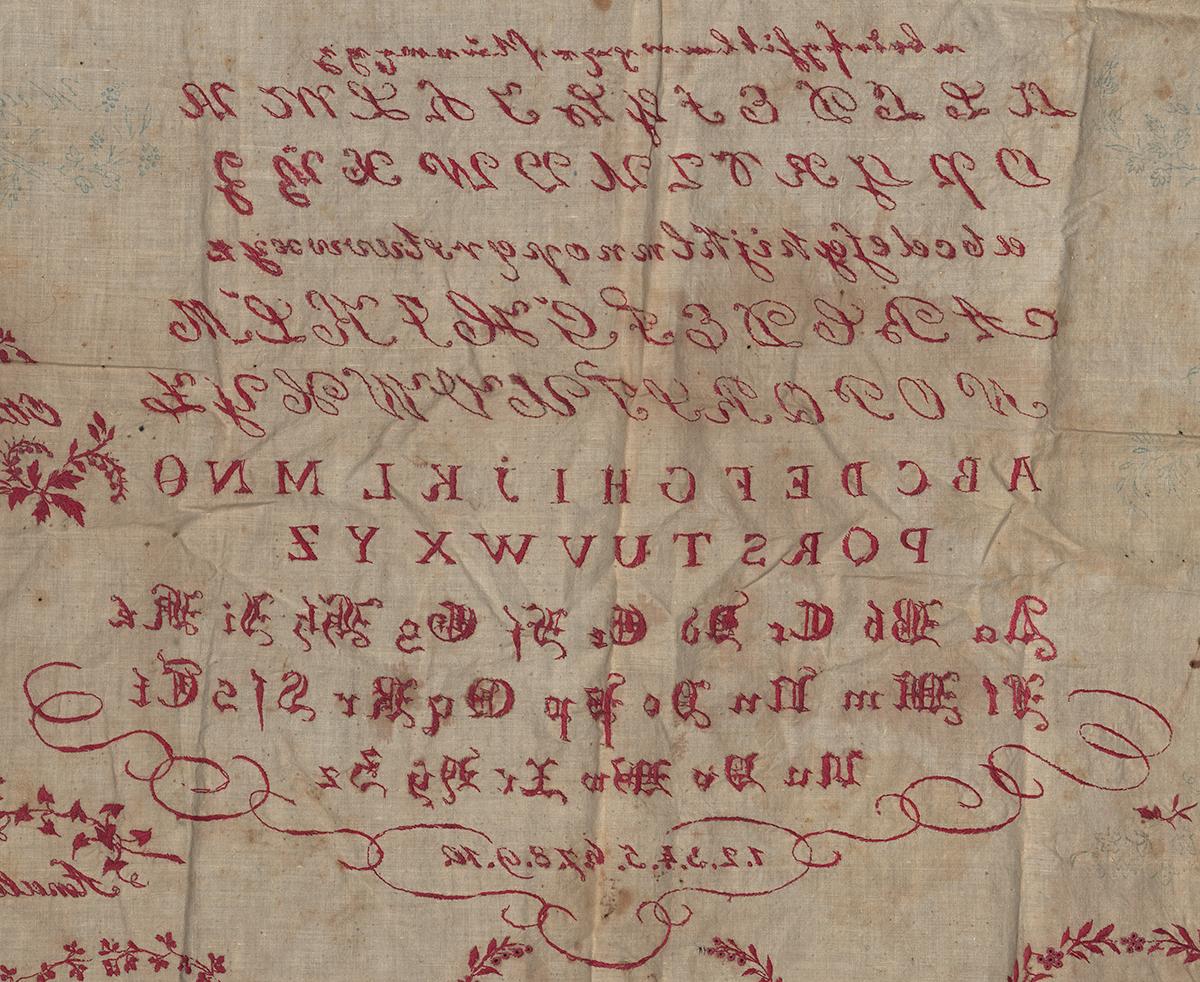 A B C D E F G H I K L M N
O P Q R S T U V W X Y Z
a b c d e f g h i j k l m n o p q r s t u v w x y z
A B C D E F G H I K L M
N O P Q R S T U V W X Y Z
A B C D E F G H I j K L M N O
P Q R S T U V W X Y Z
Aa Bb Cc Dd Ee Ff Gg Hh Ii Kk
Ll Mm Nn Oo Pp Qq Rr Sſs Tt
Uu Vv Ww Xx Yy Zz
1.2.3.4.5.6.7.8.9.10